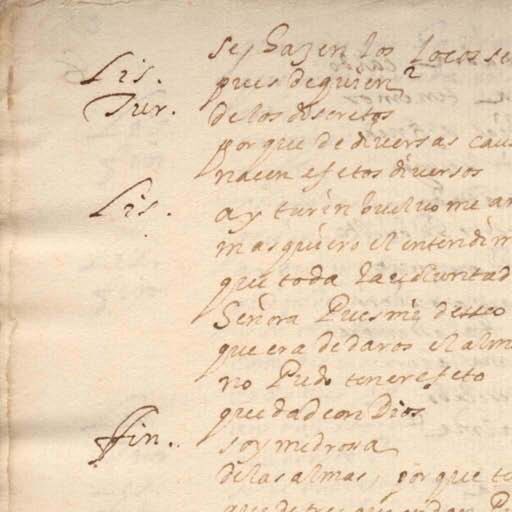 se hazen los locos se
Lis. pues de quien?
Tur. de los discretos
porque de diuersas caus
nacen efetos diuersos
Lis. ay turin bueluome a
mas quiero el entendim
que toda la uoluntad
Señora Pues mi desseo
que era de daros el alm
no Pudo tener efeto
quedad con Dios
fin. soy medrosa
de las almas, porque te
que de tres que andan P